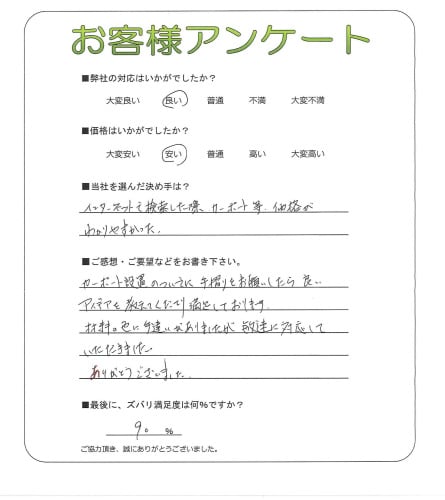 お客様アンケート
■弊社の対応はいかがでしたか?
大変良い 良い 普通 不満 大変不満
■価格はいかがでしたか?
大変安い 安い 普通 高い 大変高い
■当社を選んだ決め手は?
インターネットで検索した際、カーポート等、価格が
わかりやすかった。
■ご感想・ご要望などをお書き下さい。
カーポート設置のついでに手摺りをお願いしたら良い
アイデアを教えてくださり満足しております。
材料の色に手違いがありましたが 迅速に対応して
いただきました。
ありがとうございました。
■最後に、ズバリ満足度は何%ですか?
90 %
ご協力頂き、誠にありがとうございました。